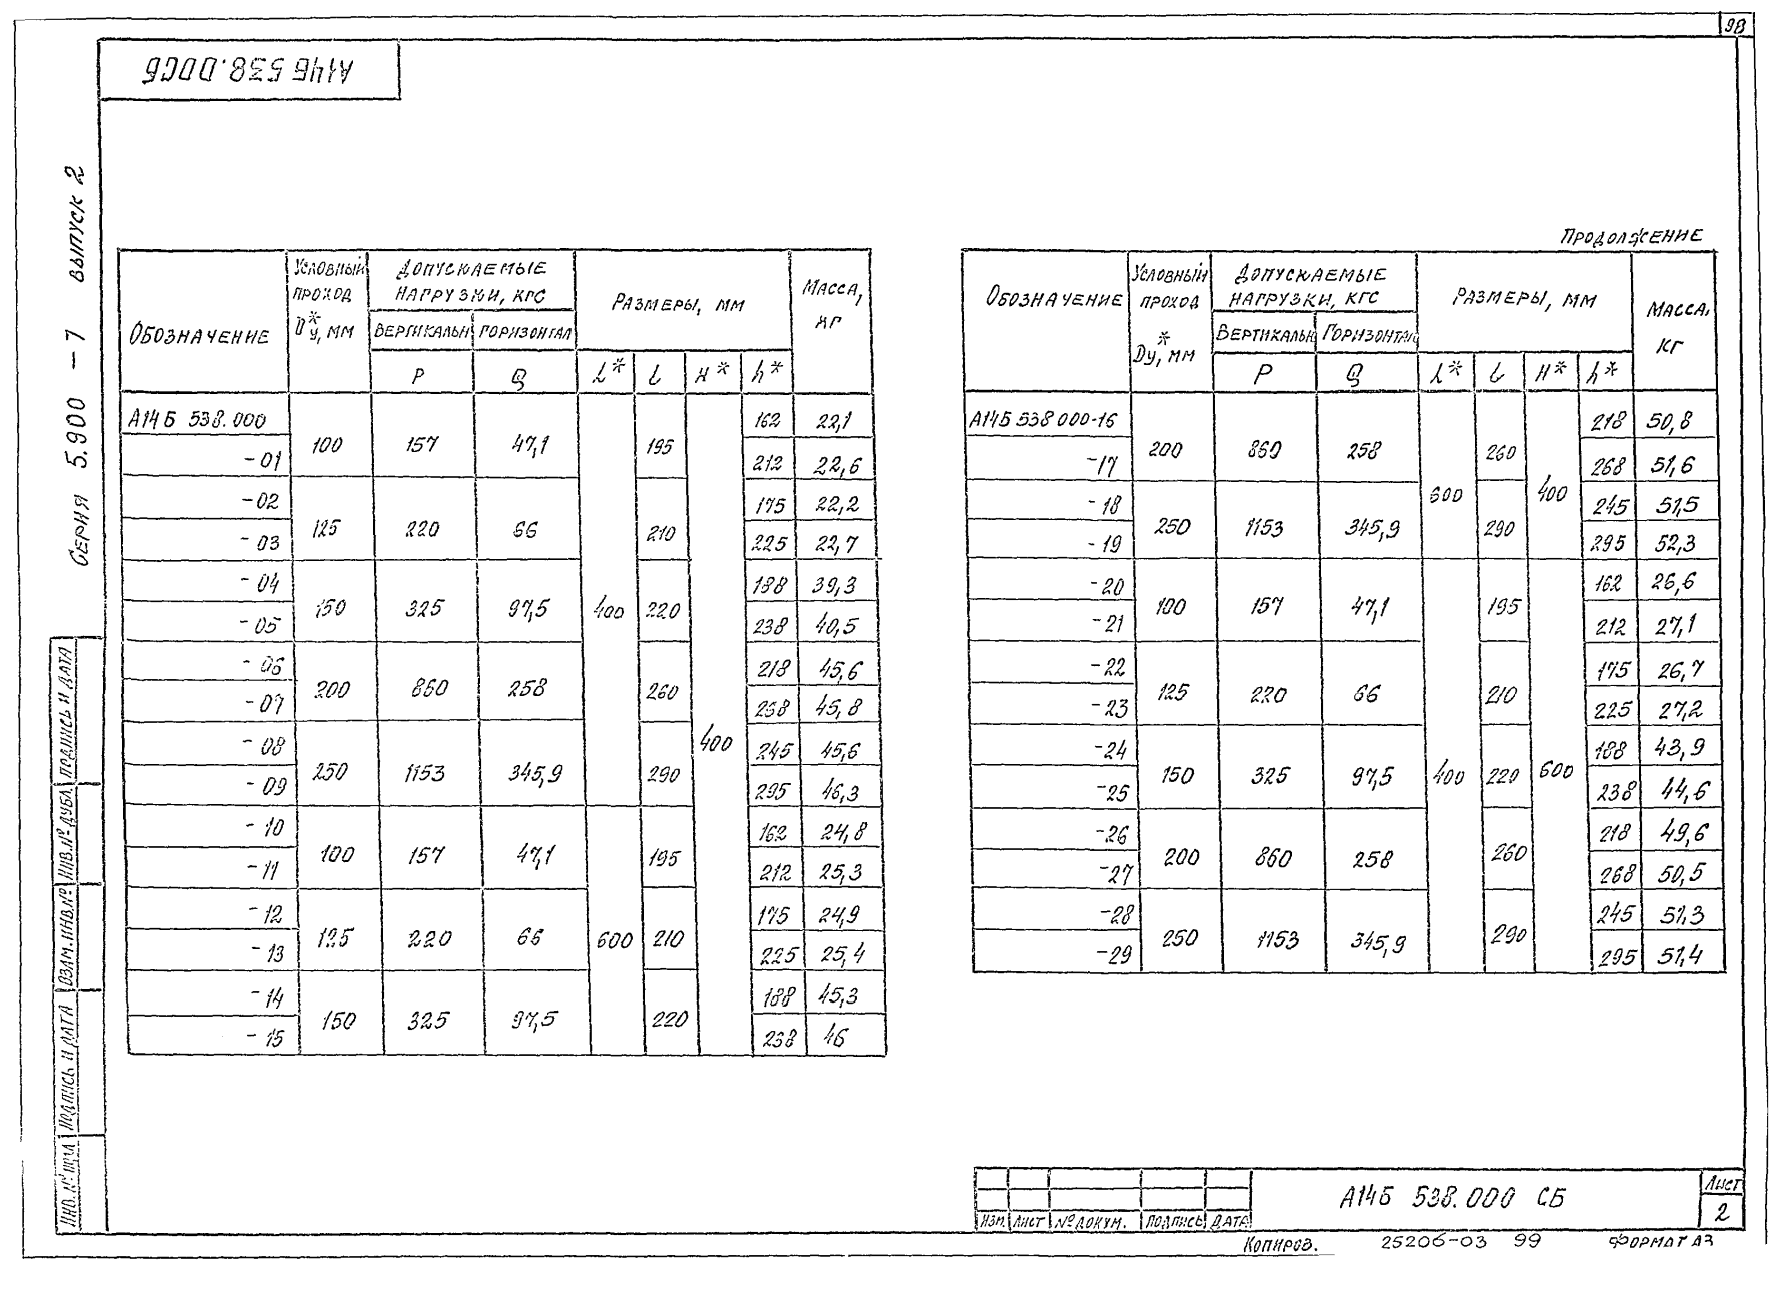 98
А14Б 538.000СБ
Серия 5.900-7 выпуск 2
Обозначение
Условный проход Dу*, мм
Допускаемые нагрузки, кгс
Размеры, мм
Масса, кг
Вертикальн
Горизонтал
P Q L* l H* h*
А14Б 538.000 100 157 47,1 400 195 400 162 22,1
-01 212 22,6
-02 125 220 66 210 175 22,2
-03 225 22,7
-04 150 325 97,5 220 188 39,3
-05 238 40,5
-06 200 860 258 260 218 45,6
-07 268 45,8
-08 250 1153 345,9 290 245 45,6
-09 295 46,3
-10 100 157 47,1 600 195 162 24,8
-11 212 25,3
-12 125 220 66 210 175 24,9
-13 225 25,4
-14 150 325 97,5 220 188 45,3
-15 238 46
Продолжение
Обозначение
Условный проход Dу*, мм
Допускаемые нагрузки, кгс
Размеры, мм
Масса, кг
Вертикальн
Горизонтал
P Q L* l H* h*
А14Б 538 000-16 200 860 258 600 260 400 218 50,8
-17 268 51,6
-18 250 1153 345,9 290 245 51,5
-19 295 52,3
-20 100 157 47,1 400 195 600 162 26,6
-21 212 27,1
-22 125 220 66 210 175 26,7
-23 225 27,2
-24 150 325 97,5 220 188 43,9
-25 238 44,6
-26 200 860 258 260 218 49,6
-27 268 50,5
-28 250 1153 345,9 290 245 51,3
-29 295 51,4
Инв. № подл
Подпись и дата
Взам. инв. №
Инв. № дубл
Подпись и дата
Изм. Лист № докум. Подпись Дата
А14Б 538.000 СБ
Лист
2
Копиров. 25206-03 99 Формат А3